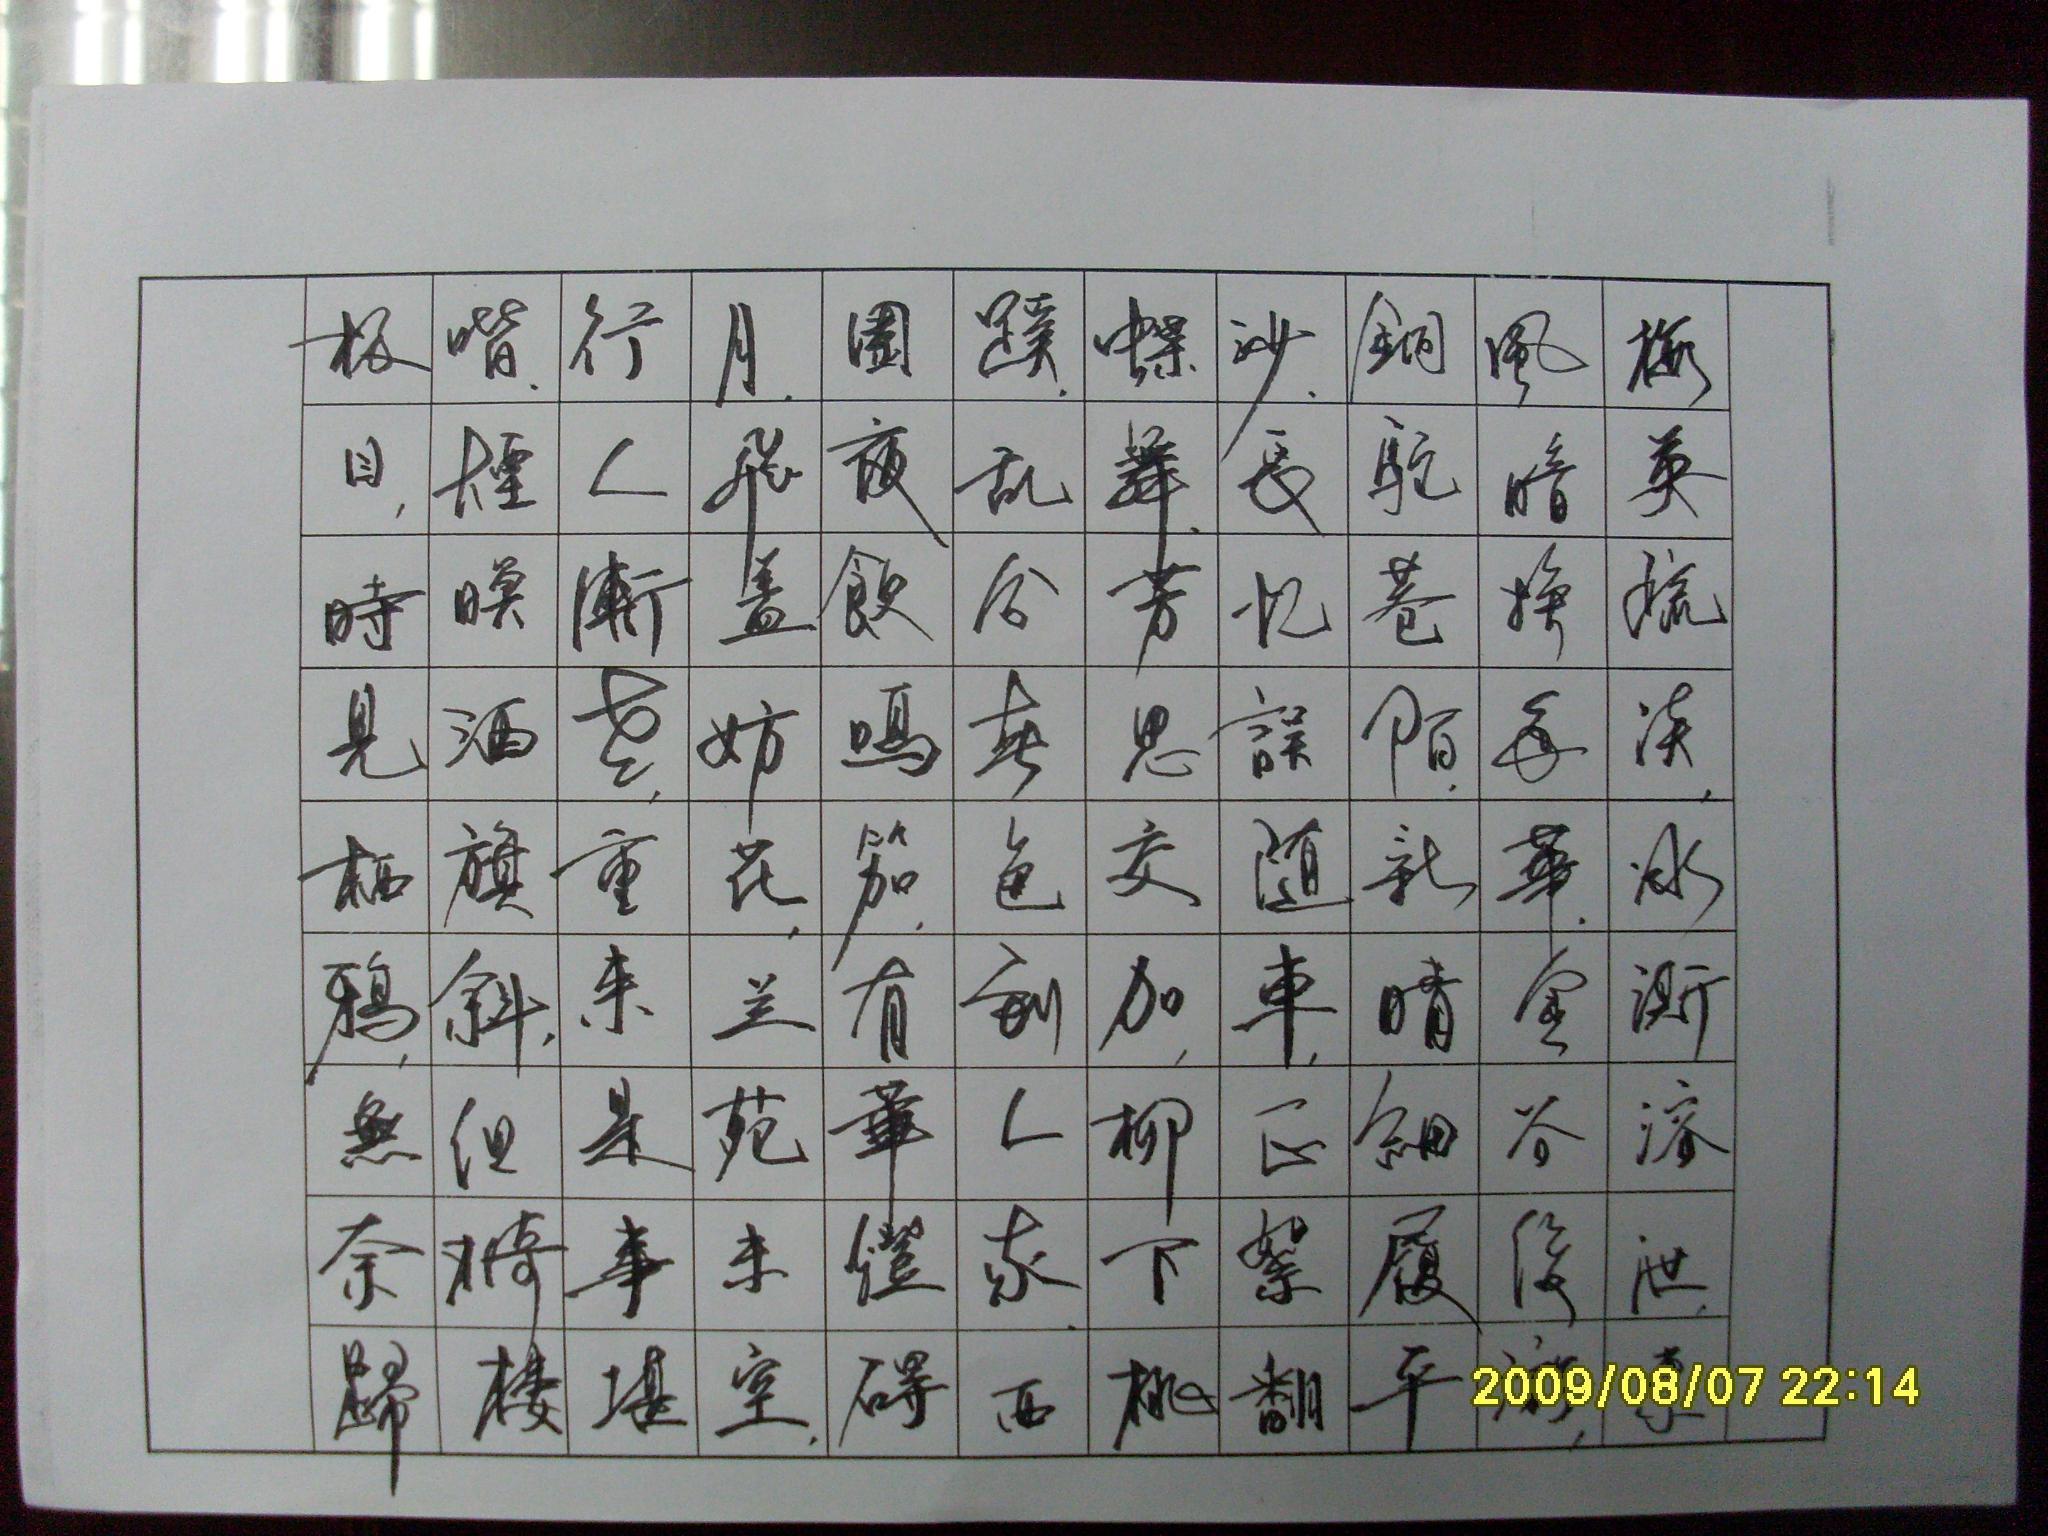 梅英疏淡,冰澌溶泄,東
風暗換年華.金谷俊游,
銅駝巷陌,新晴細履平
沙.長忆誤随車,正絮翻
蝶舞.芳思交加,柳下桃
蹊.乱分春色到人家.西
園夜飲鳴笳.有華燈碍
月.飛盖妨花,兰苑未空,
行人漸老,重来是事堪
嗟.煙暝酒旗斜.但倚楼
极目,時見栖鴉,無奈歸
2009/08/07 22:14